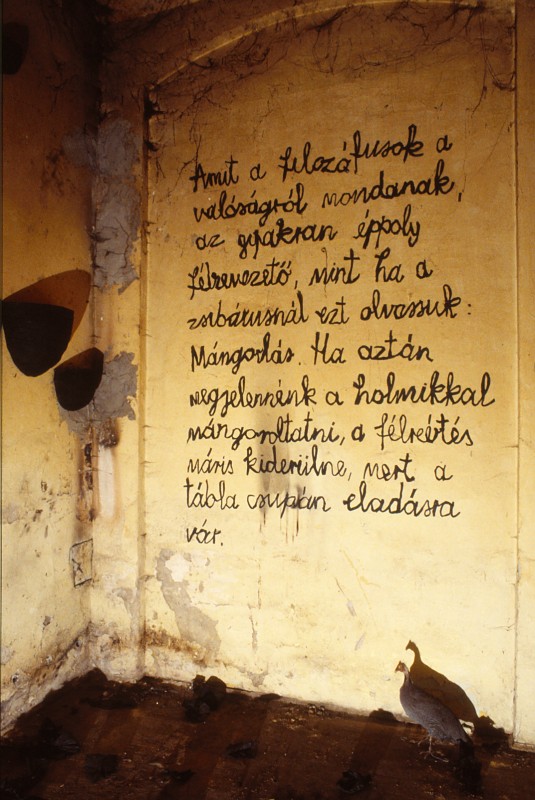 Amit a filozófusok a
valóságról mondanak,
az gyakran éppoly
félrevezető, mint ha a
zsibárusnál ezt olvassuk:
Mángorlás. Ha aztán
megjelennénk a holmikkal
mángoroltatni, a félreértés
máris kiderülne, mert a
tábla csupán eladásra
vár.